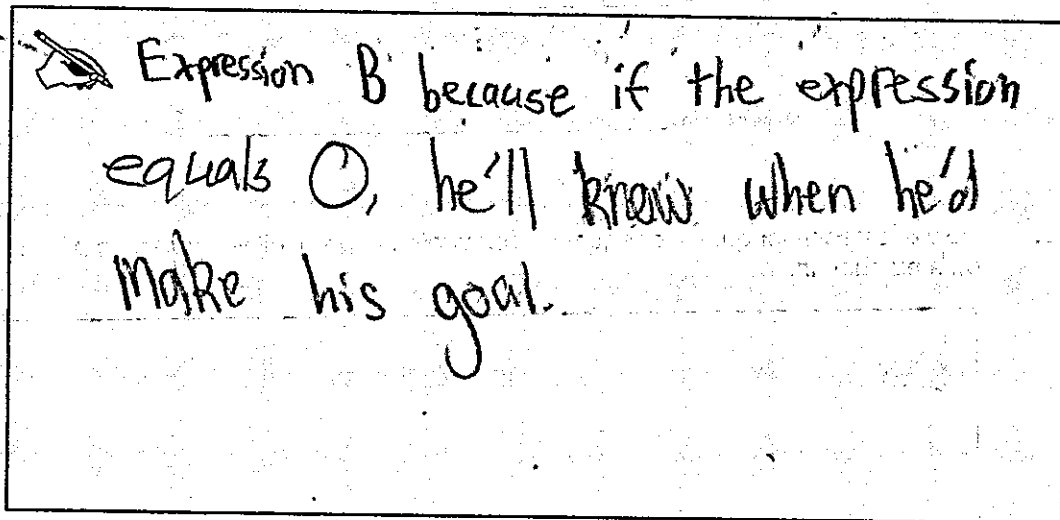 Expression B because if the expression
equals 0, he'll know when he'd
make his goal.